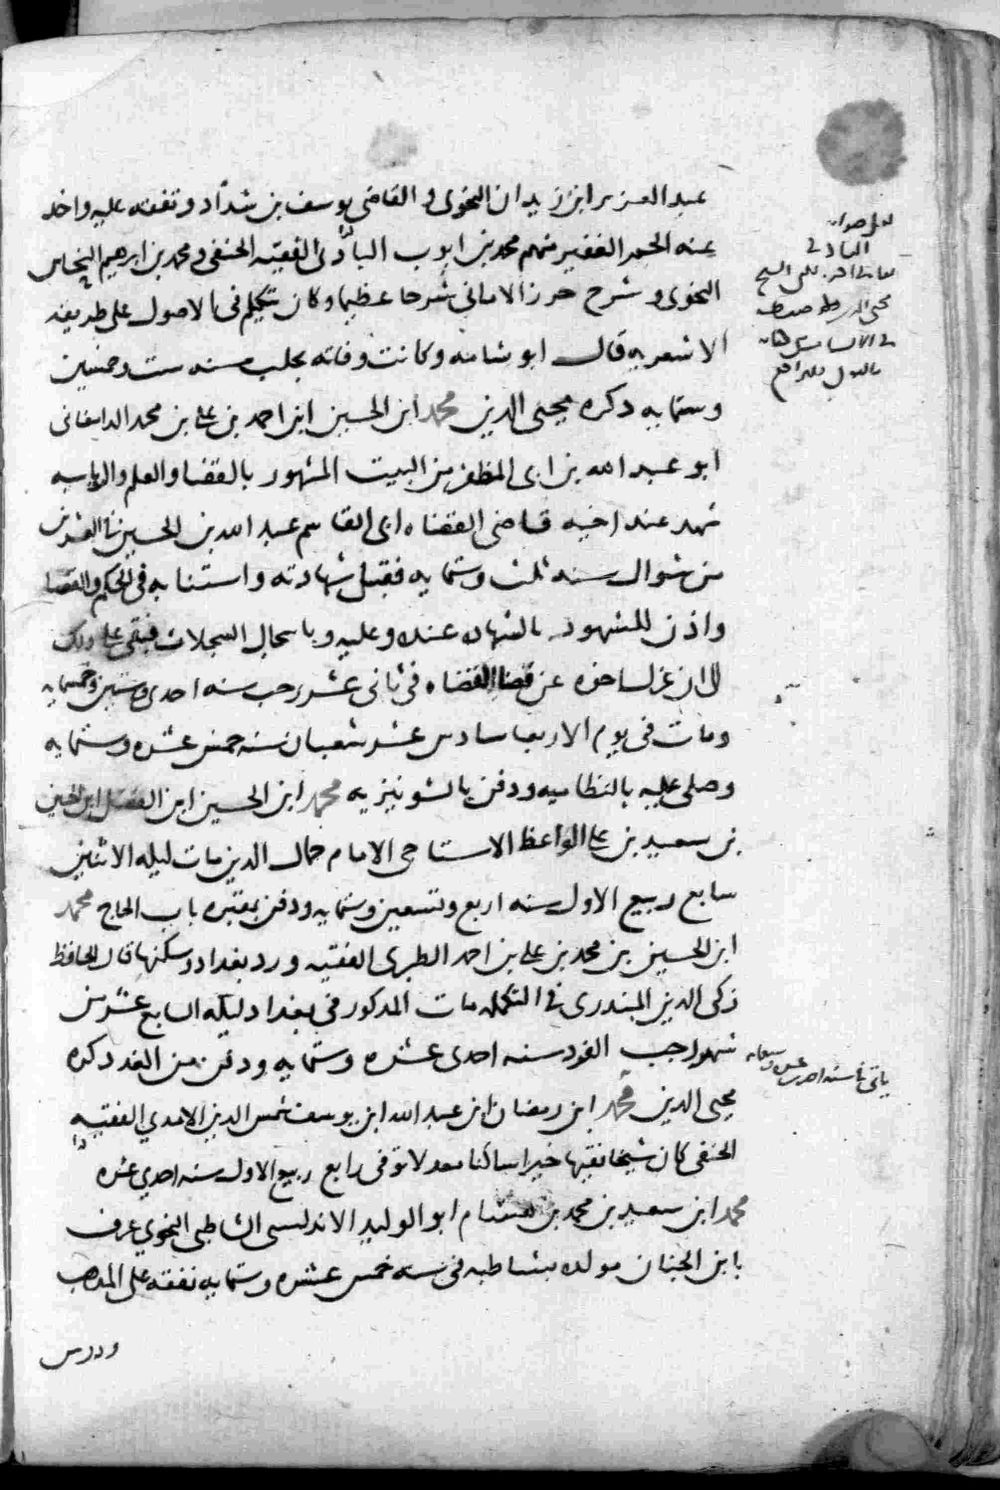 عبد العزيز ابن زيدان النحوى و القاضى يوسف بن شداد وتفقه عليه واخد
عنه الجم الغفير منهم محمد بن ايوب التادفى الفقيه الحنفى و محمد بن ابرهيم النحاس
النحوى و شرح حرز الامانى شرحا عظيما وكان يتكلم فى الاصول على طريقه
الاشعريه قال ابو شامه وكانت وفاته بحلب سنه ست وخمسين
وستمايه دكره محيى الدين محمد ابن الحسين ابن احمد بن على بن محمد الدامغانى
ابو عبد الله بن ابى المظفر من البيت المشهور بالقضا والعلم والرياسه
شهد عند اخيه قاضى القضاه ابى القاسم عبد الله بن الحسين فى العشرين
من شوال سنه ثلث وستمايه فقبل شهادته واستنابه فى الحكم والقضا
واذن للشهود بالشهاده عنده وعليه وباسجال السجلات فبقى على دلك
الى ان عزل اخوه عن قضا القضاه فى ثانى عشر رجب سنه احدى وستين وخمسمايه
ومات فى يوم الاربعا سادس عشر شعبان سنه خمس عشره وستمايه
وصلى عليه بالنظاميه ودفن بالشونيزيه محمد ابن الحسين ابن الفضل ابن الحسين
بن سعيد بن على الواعظ الاستاجى الامام جمال الدين مات ليله الاثنين
سابع ربيع الاول سنه اربع وتسعين وستمايه ودفن بمقبره باب الحاج محمد
ابن الحسين بن محمد بن على بن احمد الطبرى الفقيه ورد بغداد وسكنها قال الحافظ
زكى الدين المندرى فى التكمله مات المدكور فى بغداد ليله السابع عشر من
شهر رجب الفرد سنه احدى عشره وستمايه ودفن من الغد دكره
محيى الدين محمد ابن رمضان ابن عبد الله ابن يوسف شمس الدين الامدي الفقيه
الحنفى كان شيخا فقيها خيرا ساكنا معدلا توفى رابع ربيع الاول سنه احدي عشره
محمد ابن سعيد بن محمد بن هشام ابو الوليد الاندلسى الشاطبى النحوي عرف
بابن الجنان مولده بشاطبه فى سنه خمس عشره وستمايه تفقه على المدهب
ودرس
لعل صوابه
التادفى
محيى الدين
فى الانساب
ياتى فى سنه احدى عشر وسبعمايه